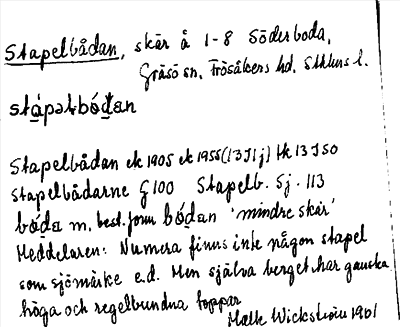 Stapelbådan, skär å 1-8 Söderboda,
Gräsö sn, Frösåkers hd, Sthlms l.
stápəlbódan
Stapelbådan ek 1905 ek 1955 (13I1j) tk 13I50
Stapelbådarne G100 Stapelb. Sj. 113
båda m. best. form bódan 'mindre skär'
Meddelaren: Numera finns inte någon stapel
som sjömärke e.d. Men själva berget har ganska
höga och regelbundna toppar
Malte Wickström 1961